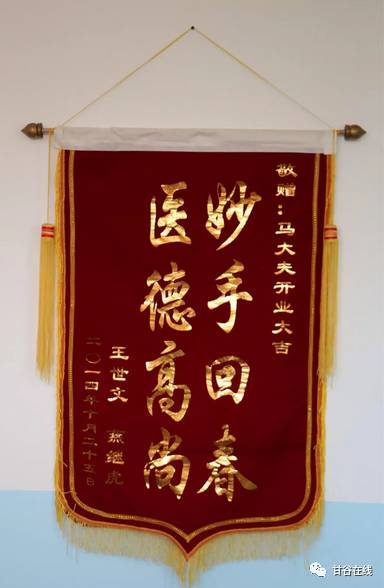 敬赠：马大夫开业大吉
妙手回春
医德高尚
王世文 燕继虎
二〇一四年十月二十五日
甘谷在线